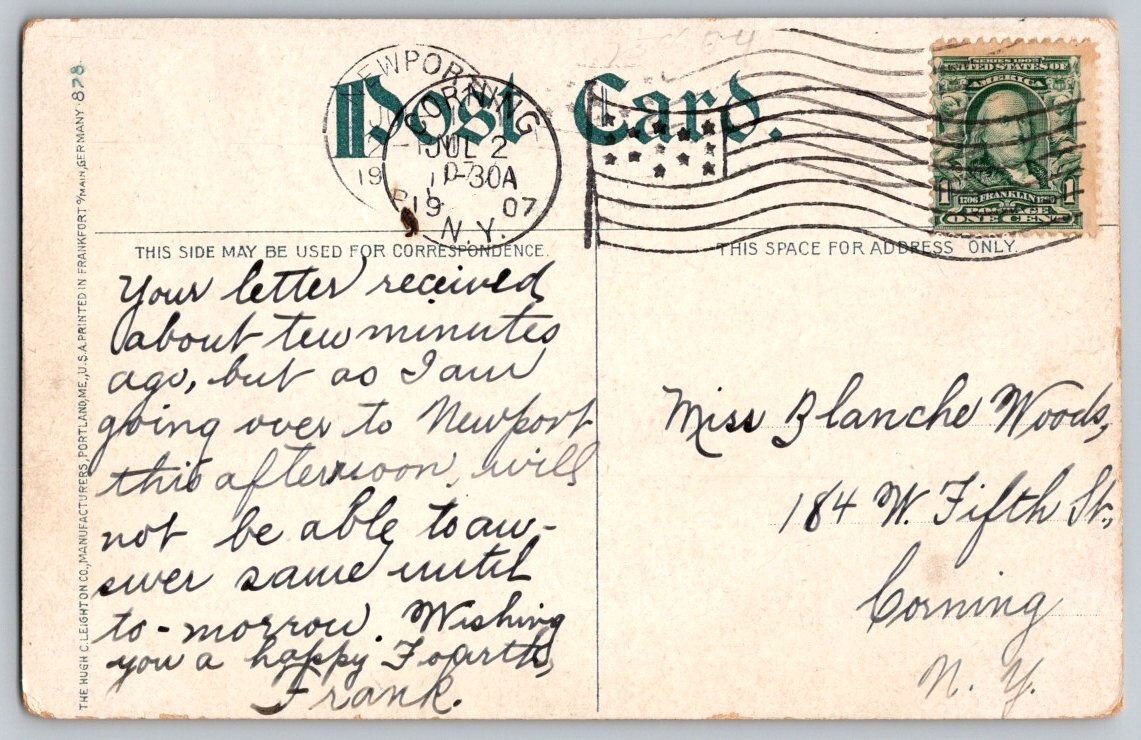 878
Post Card.
NEWPOR
CORNING
JUL 2
11-30A
19 07
N.Y.
19
SERIES 1902
UNITED STATES OF
AMERICA
1 1706 FRANKLIN 1790 1
POSTAGE
ONE CENT
THIS SIDE MAY BE USED FOR CORRESPONDENCE.
THIS SPACE FOR ADDRESS ONLY.
Your letter received
about ten minutes
ago, but as I am
going over to Newport
this afternoon, will
not be able to an-
swer same until
to-morrow. Wishing
you a happy Fourth,
Frank.
Miss Blanche Woods,
184 W. Fifth St.,
Corning
N. Y.
THE HUGH C. LEIGHTON CO., MANUFACTURERS, PORTLAND, ME., U.S.A. PRINTED IN FRANKFORT o/MAIN, GERMANY